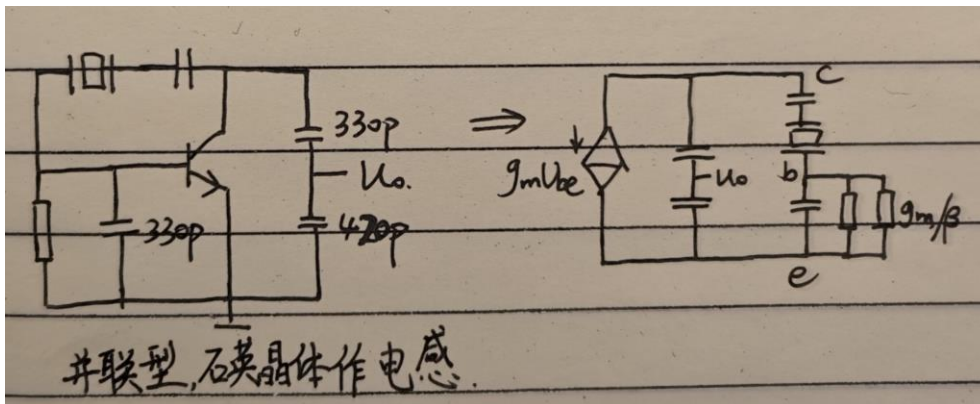 330p
Uo.
330p
420p
⇒
gmUbe
Uo
c
b
e
gm/β
并联型,石英晶体作电感.